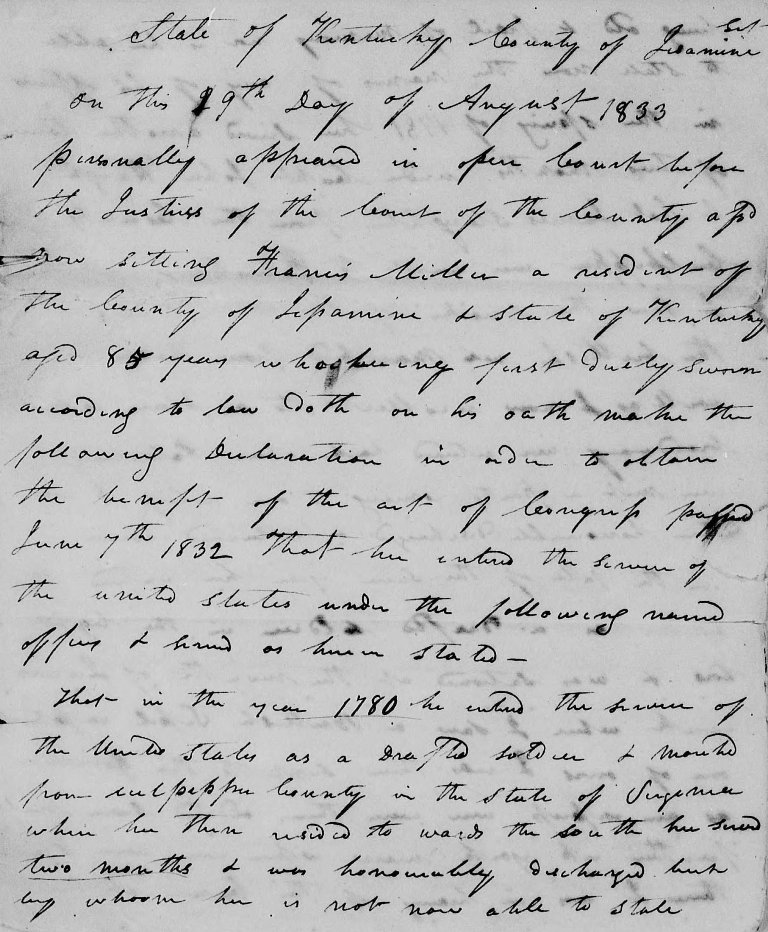 State of Kentucky County of Jessamine Sct
On this 29th Day of August 1833
personally appeared in open Court before
the Justices of the Court of the County afsd
now sitting Francis Miller a resident of
the County of Jessamine & State of Kentucky
aged 85 years who being first duely sworn
according to law doth on his oath make the
following Declaration in order to obtain
the benefit of the act of Congress passed
June 7th 1832 That he entered the service of
the united States under the following named
officers & served as herein stated –
That in the year 1780 he entered the service of
the United States as a Drafted soldier &
from Culpepper County in the State of Virginia
where he then resided to wards the south he served
two months & was honourably discharged but
by whoom he is not now able to State